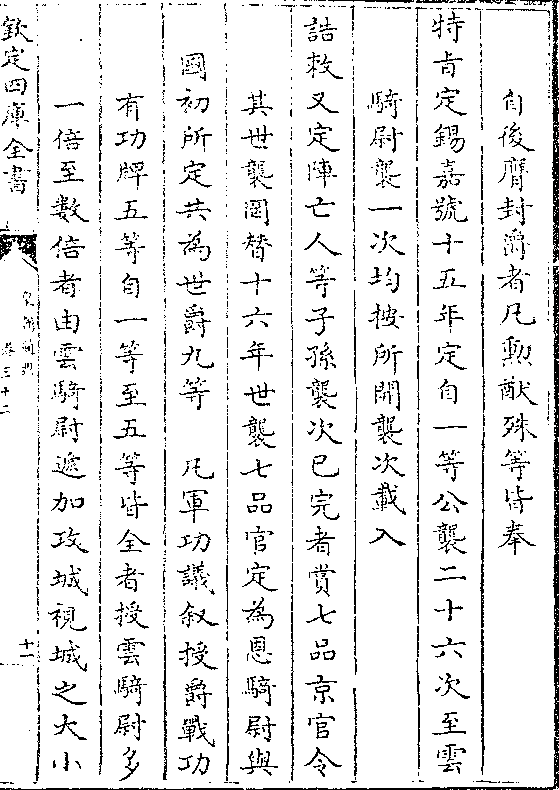 自後膺封爵者凡勲猷殊等皆奉
特㫖定錫嘉號十五年定自一等公襲二十六次至雲
騎尉襲一次均按所開襲次載入
誥敕又定陣亡人等子孫襲次已完者賞七品京官令
其世襲罔替十六年世襲七品官定為恩騎尉與
國初所定共為世爵九等　凡軍功議叙授爵戰功
有功牌五等自一等至五等皆全者授雲騎尉多
一倍至數倍者由雲騎尉遞加攻城視城之大小
欽定四庫全書
卷三十二
十一